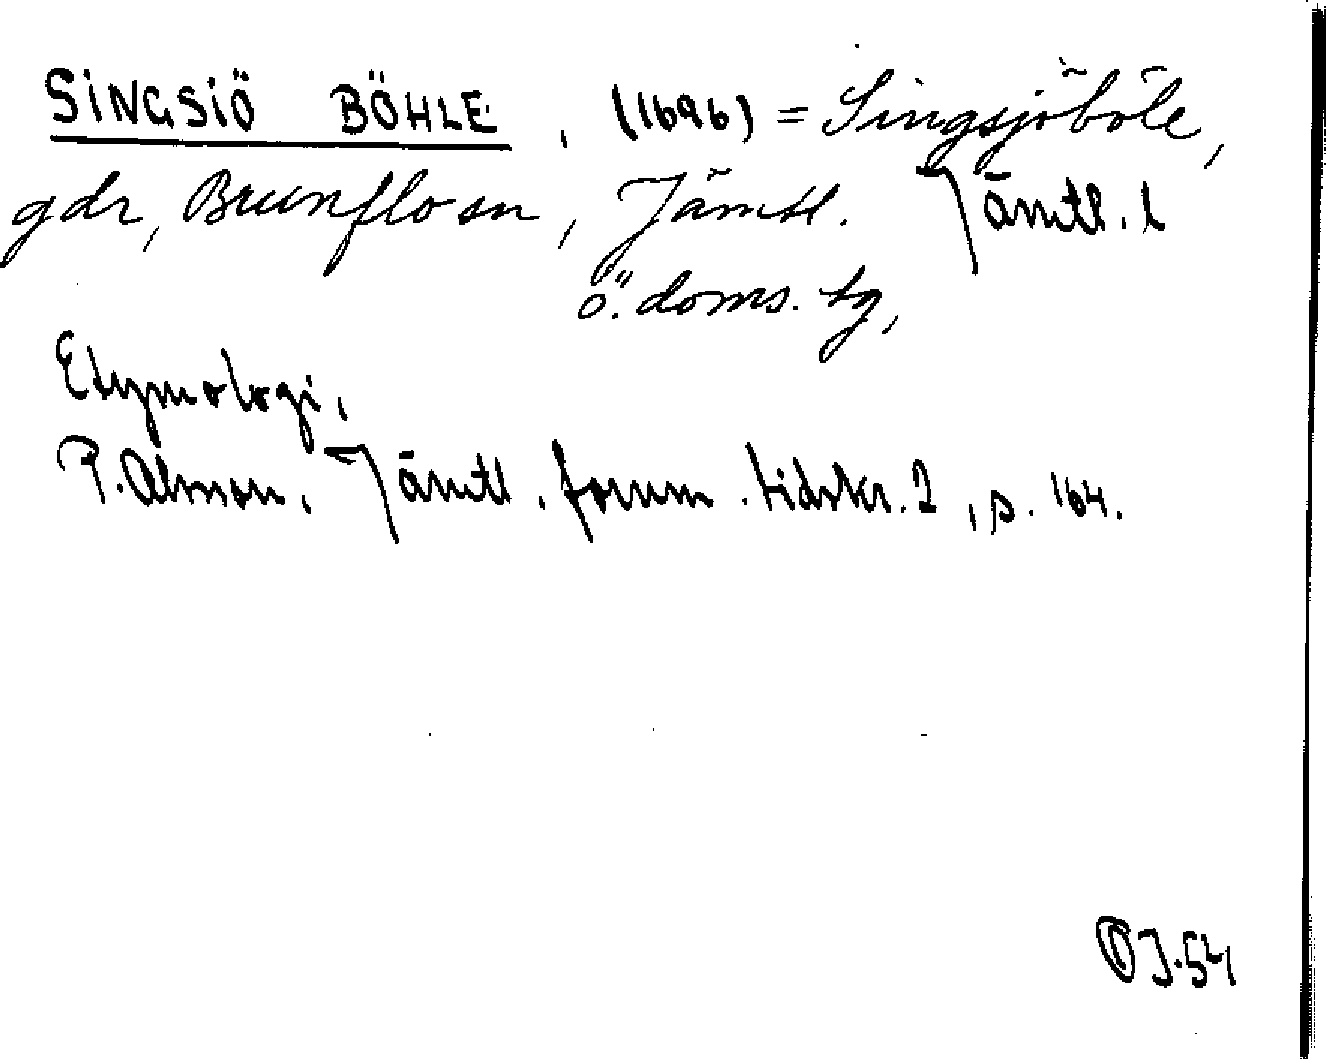 SINGSIÖ BÖHLE, (1696) = Singsjöböle,
gdr, Brunflo sn, Jämtl. Jämtl. l
ö. doms. tg,
Etymologi.
P. Olsson. Jämtl. fornm. tidskr. 2, s. 164.
OJ.54